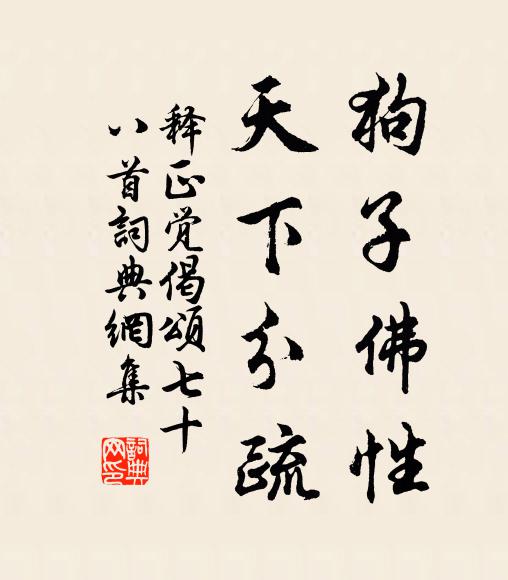 狗子佛性
天下分疏
释正觉偈颂七十
八首詞典網集
詞典网印